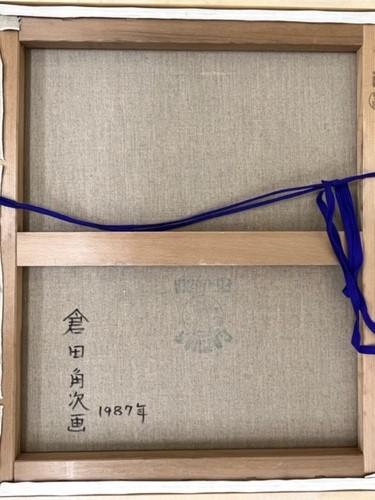 倉田角次画
1987年